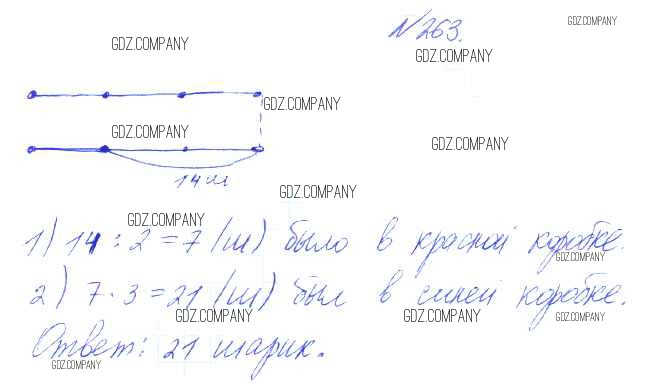 №263.
GDZ.COMPANY
GDZ.COMPANY
GDZ.COMPANY
GDZ.COMPANY
GDZ.COMPANY
GDZ.COMPANY
14 ш
GDZ.COMPANY
GDZ.COMPANY
1) 14 : 2 = 7 (ш) было в красной коробке.
GDZ.COMPANY
2) 7 · 3 = 21 (ш) был в синей коробке.
GDZ.COMPANY
GDZ.COMPANY
GDZ.COMPANY
Ответ: 21 шарик.
GDZ.COMPANY